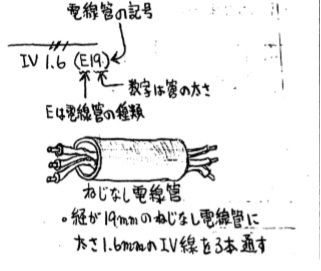 電線管の記号
IV 1.6 (E19)
数字は管の太さ
Eは電線管の種類
ねじなし電線管
。経が19mmのねじなし電線管に
太さ1.6mmのIV線を3本通す